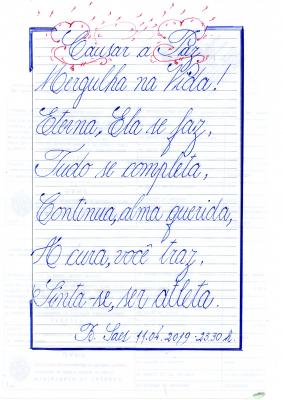 Causar a Paz
Mergulha na Vida!
Eterna, Ela se faz,
Tudo se completa,
Continua, alma querida,
A cura, você traz,
Sinta-se, ser atleta.
R. Saes 11.04.2019 - 23:30 h.